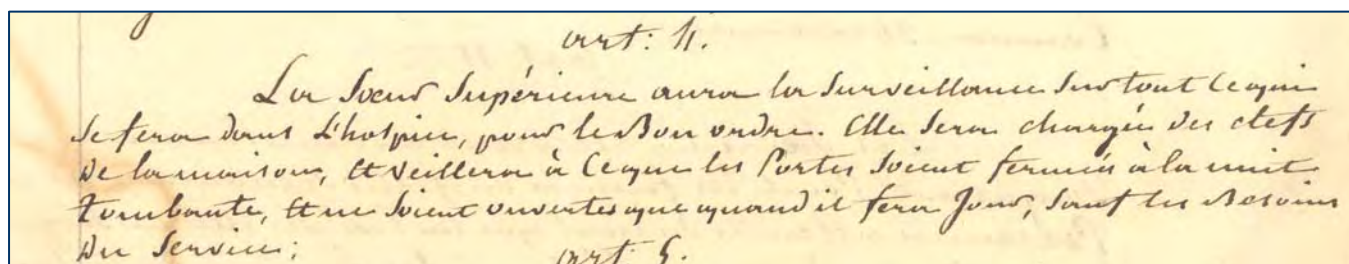 art: 4.
La Soeur Supérieure aura la Surveillance Sur tout Ce qui
Se fera dans L'hospice, pour le Bon ordre. Elle Sera chargée des clefs
De la maison, Et veillera à Ce que les Portes Soient fermées à la nuit
Tombante, Et ne Soient ouvertes que quand il fera Jour, Sauf les Besoins
Du Service;
art. 5.